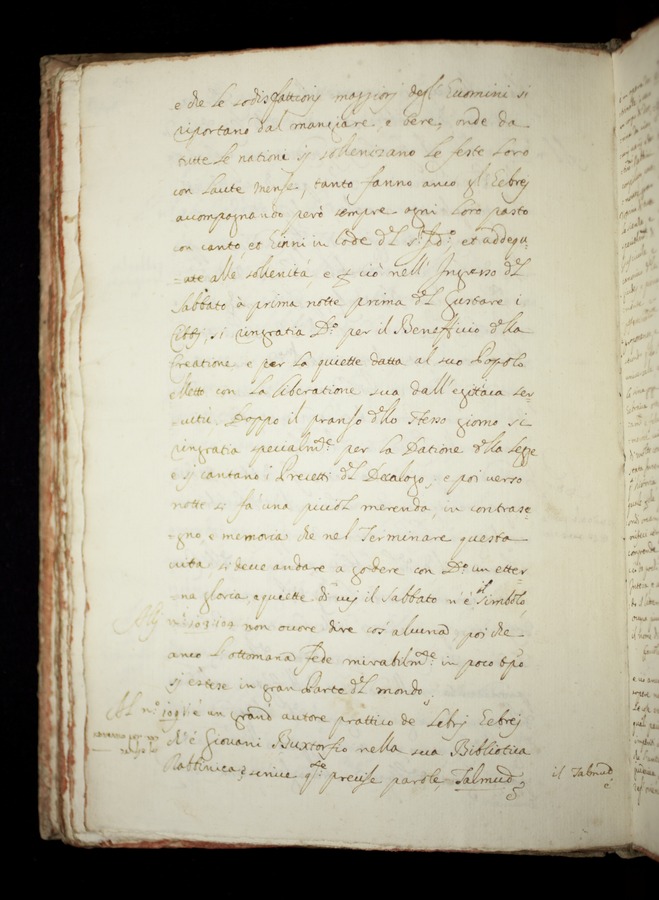 e che le sodisfattioni maggiori degl' Euomini si
riportano dal mangiare, e bere, onde da
tutte le nationi si sollenizano le feste loro
con laute mense, tanto fanno anco gl' Eebrej
acompagnando però sempre ogni loro pasto
con canto, et Einni in lode del S.r Id.o et addequ
=ate alle sollenità, e ciò nell' Ingresso del
Sabbato à prima notte prima del gustare i
Cibbj, si ringratia D.o per il Benefficio della
Creatione, e per la quiette datta al suo Popolo
elletto con la liberatione sua dall' egitiaca ser
=vitù. Doppo il pranso dello stesso giorno si
ringratia specialm.te per la Datione della legge
e si cantano i Precetti del Decalogo, e poi verso
notte si fà una picciol merenda, in contrase
=gno e memoria che nel Terminare questa
vita, si deve andare a godere con D.o un etter
=na gloria, e quiette di cuj il Sabbato n'è il simbolo,
Alli n.i 103: 104 non occore dire cos' alcuna, poi che
anco l'ottomana Fede mirabilm.te in poco tpo
si estese in gran Parte del mondo,
Al n.o 109 v'è un grand autore prattico de Lebrj Eebrej
ch'è Giovani Buxtorfio nella sua Bibliotica
Rabbinica, scrive q.ste precise parole, Talmud
il Talmud